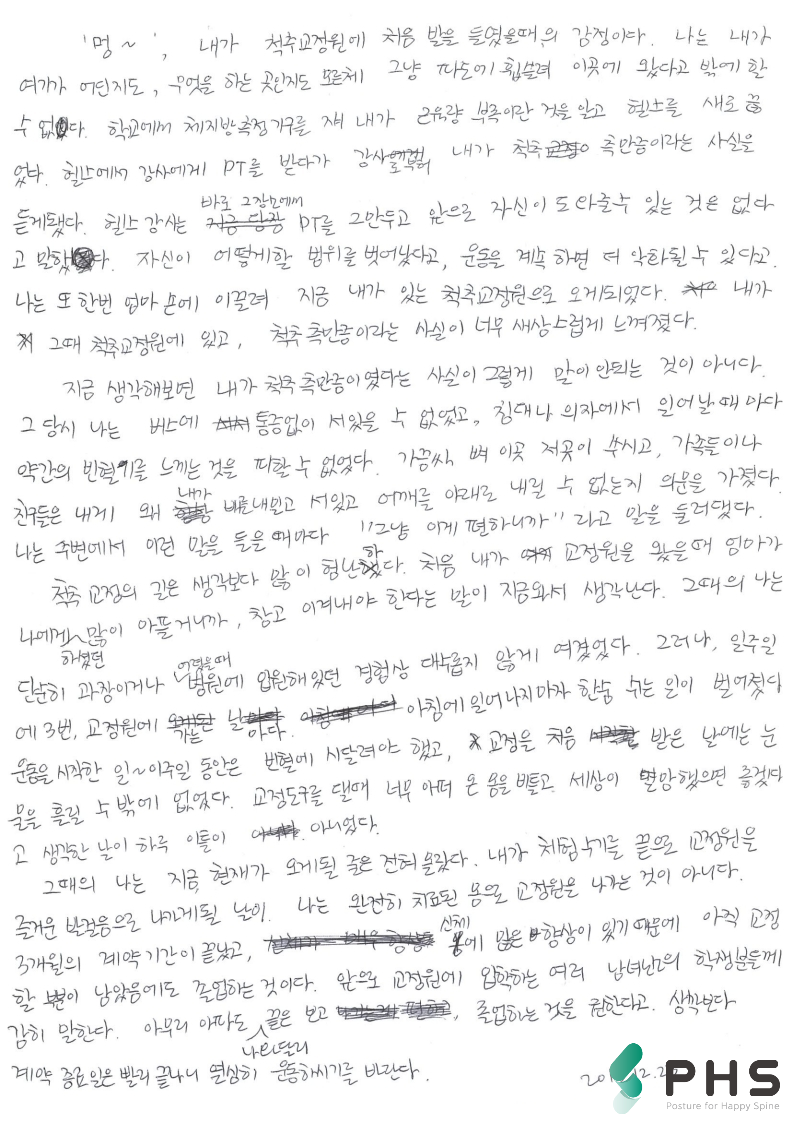 '멍~', 내가 척추교정원에 처음 발을 들였을때의 감정이다. 나는 내가
여기가 어딘지도, 무엇을 하는 곳인지도 모른체 그냥 파도에 휩쓸려 이곳에 왔다고 밖에 할
수 없었다. 학교에서 체지방측정기구를 재 내가 근육량 부족이란 것을 알고 헬스를 새로 끊
었다. 헬스에서 강사에게 PT를 받다가 강사로부터 내가 척추 측만증이라는 사실을
듣게됐다. 헬스 강사는 바로 그장소에서 PT를 그만두고 앞으로 자신이 도와줄수 있는 것은 없다
고 말했다. 자신이 어떻게할 범위를 벗어났다고, 운동을 계속 하면 더 악화될 수 있다고.
나는 또 한번 엄마 손에 이끌려 지금 내가 있는 척추교정원으로 오게되었다. 내가
그때 척추교정원에 있고, 척추 측만증이라는 사실이 너무 새삼스럽게 느껴졌다.
지금 생각해보면 내가 척추 측만증이였다는 사실이 그렇게 말이 안되는 것이 아니다.
그 당시 나는 버스에 통증없이 서있을 수 없었고, 침대나 의자에서 일어날 때 마다
약간의 빈혈기를 느끼는 것을 피할 수 없었다. 가끔씩 뼈 이곳 저곳이 쑤시고, 가족들이나
친구들은 내게 왜 내가 배를내밀고 서있고 어깨를 아래로 내릴 수 없는지 의문을 가졌다.
나는 주변에서 이런 말을 들을 때마다 "그냥 이게 편하니까" 라고 말을 둘러댔다.
척추 교정의 길은 생각보다 많이 험난하였다. 처음 내가 교정원을 왔을 때 엄마가
나에게 하셨던 많이 아플거니까, 참고 이겨내야 한다는 말이 지금와서 생각난다. 그때의 나는
단순히 과장이거나 어렸을때 병원에 입원해있던 경험상 대수롭지 않게 여겼었다. 그러나, 일주일
에 3번, 교정원에 가는 날마다. 아침에 일어나자마자 한숨 쉬는 일이 벌어졌다
운동을 시작한 일~이주일 동안은 빈혈에 시달려야 했고, 교정을 처음 받은 날에는 눈
물을 흘릴 수 밖에 없었다. 교정도구를 댈때 너무 아퍼 온 몸을 비틀고 세상이 멸망했으면 좋겠다
고 생각한 날이 하루 이틀이 아니었다.
그때의 나는 지금 현재가 오게될 줄은 전혀 몰랐다. 내가 체험수기를 끝으로 교정원을
즐거운 발걸음으로 나가게될 날이. 나는 완전히 치료된 몸으로 교정원을 나가는 것이 아니다.
3개월의 계약기간이 끝났고, 신체에 많은 향상이 있기 때문에 아직 교정
할 분이 남았음에도 졸업하는 것이다. 앞으로 교정원에 입학하는 여러 남녀노소의 학생분들께
감히 말한다. 아무리 아파도 끝은 보고 나의달리, 졸업하는 것을 권한다고. 생각보다
계약 종료일은 빨리 끝나니 열심히 운동하시기를 바란다.
PHS
Posture for Happy Spine